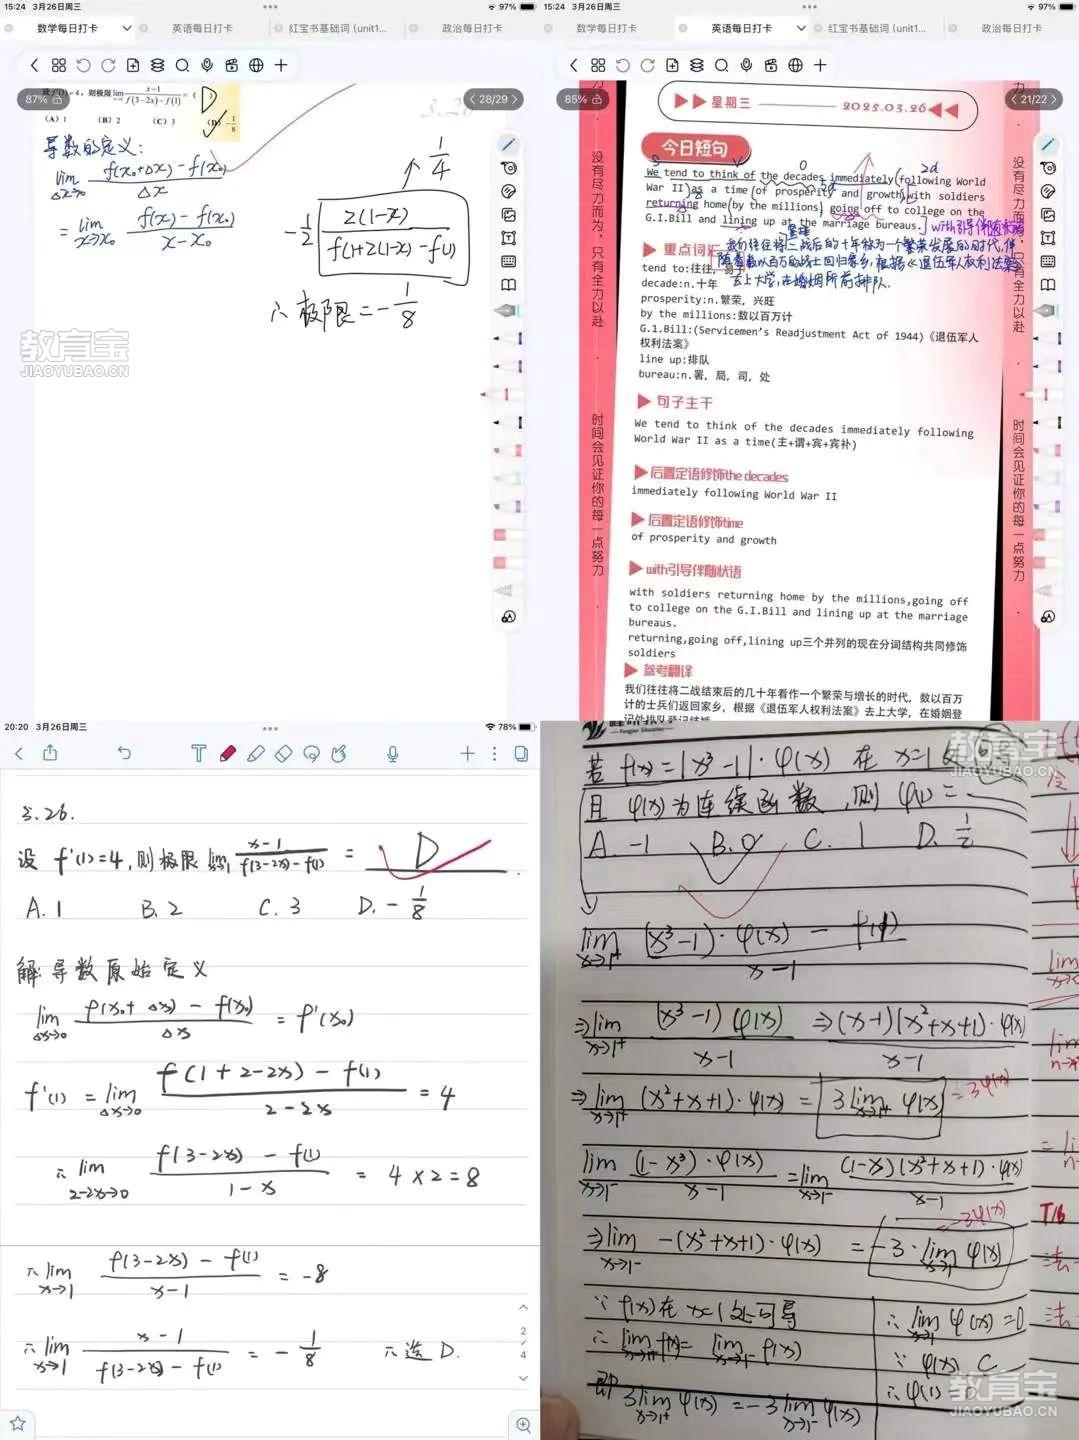 15:24 3月26日周三
97%
数学每日打卡
英语每日打卡
红宝书基础词 (unit1...
政治每日打卡
87%
28/29
f'(1)=4, 则极限 lim x-1 / f(3-2x)-f(1) = ( D )
(A) 1 (B) 2 (C) 3 (D) -1/8
3.26
导数的定义:
lim Δx→0 f(x₀+Δx)-f(x₀) / Δx
= lim x→x₀ f(x)-f(x₀) / x-x₀
1/4
-1/2 2(1-x) / f(1+2(1-x))-f(1)
∴极限=-1/8
教育宝
JIAOYUBAO.CN
15:24 3月26日周三
97%
数学每日打卡
英语每日打卡
红宝书基础词 (unit1...
政治每日打卡
85%
21/22
星期三
2025.03.26
今日短句
We tend to think of the decades immediately following World
War II as a time of prosperity and growth, with soldiers
returning home by the millions, going off to college on the
G.I.Bill and lining up at the marriage bureaus.
with引导伴随状语
我们往往将二战后的十年称为一个繁荣发展的时代,伴
随着数以百万的战士回归家乡,根据《退伍军人权利法案》
去上大学,在婚姻所前排队.
重点词汇
tend to:往往, 易于
decade:n.十年
prosperity:n.繁荣, 兴旺
by the millions:数以百万计
G.1.Bill:(Servicemen's Readjustment Act of 1944)《退伍军人
权利法案》
line up:排队
bureau:n.署, 局, 司, 处
句子主干
We tend to think of the decades immediately following
World War II as a time(主+谓+宾+宾补)
后置定语修饰the decades
immediately following World War II
后置定语修饰time
of prosperity and growth
with引导伴随状语
with soldiers returning home by the millions,going off
to college on the G.I.Bill and lining up at the marriage
bureaus.
returning,going off,lining up三个并列的现在分词结构共同修饰
soldiers
参考翻译
我们往往将二战结束后的几十年看作一个繁荣与增长的时代, 数以百万
计的士兵们返回家乡, 根据《退伍军人权利法案》去上大学, 在婚姻登
记处排队登记结婚
没有尽力而为,只有全力以赴
时间会见证你的每一点努力
没有尽力而为,只有全力以赴
时间会见证你的每一点努力
20:20 3月26日周三
78%
3.26.
设 f'(1)=4, 则极限 lim x→1 x-1 / f(3-2x)-f(1) = D .
A. 1 B. 2 C. 3 D. -1/8
解: 导数原始定义
lim Δx→0 f(x₀+Δx)-f(x₀) / Δx = f'(x₀)
f'(1) = lim Δx→0 f(1+2-2x)-f(1) / 2-2x = 4
∴ lim 2-2x→0 f(3-2x)-f(1) / 1-x = 4×2=8
∴ lim x→1 f(3-2x)-f(1) / x-1 = -8
∴ lim x→1 x-1 / f(3-2x)-f(1) = -1/8 ∴选 D.
2
4
教育宝
JIAOYUBAO.CN
若 f(x)=|x³-1|·φ(x) 在 x=1 处
且 φ(x)为连续函数, 则 φ(1)=
A. -1 B. 0 C. 1 D. 1/2
lim x→1⁺ (x³-1)·φ(x) - f(1) / x-1
⇒ lim x→1⁺ (x³-1)φ(x) / x-1 ⇒ (x-1)(x²+x+1)·φ(x) / x-1
⇒ lim x→1⁺ (x²+x+1)·φ(x) = 3 lim x→1⁺ φ(x) = 3φ(x)
lim x→1⁻ (1-x³)·φ(x) / x-1 = lim x→1⁻ (1-x)(x²+x+1)·φ(x) / x-1
⇒ lim x→1⁻ -(x²+x+1)·φ(x) = -3·lim x→1⁻ φ(x) -3φ(x)
∵ f(x)在 x=1 处可导
∴ lim x→1⁺ f(x) = lim x→1⁻ f(x)
即 3 lim x→1⁺ φ(x) = -3 lim x→1⁻ φ(x)
∴ lim x→1 φ(x)=0
∵ φ(x) C
∴ φ(1)=
教育宝
JIAOYUBAO.CN